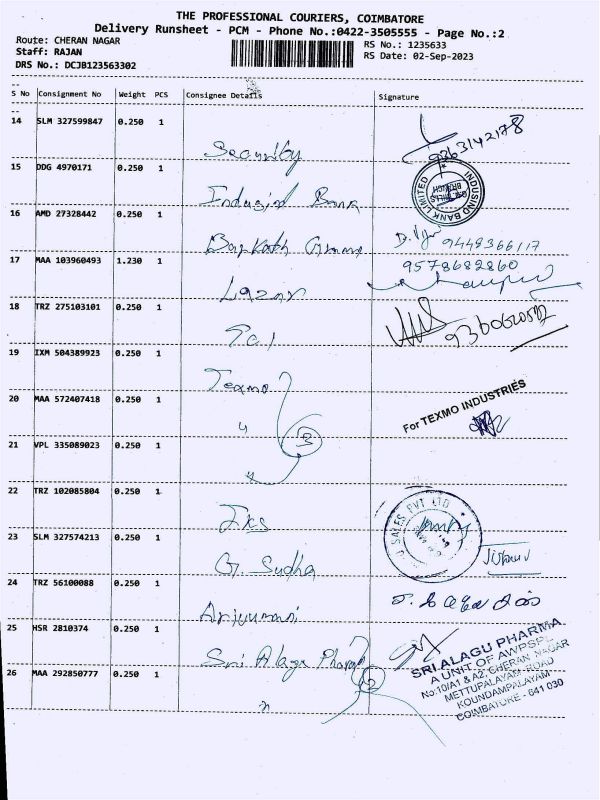 THE PROFESSIONAL COURIERS, COIMBATORE
Delivery Runsheet - PCM - Phone No.:0422-3505555 - Page No.:2
Route: CHERAN NAGAR
RS No.: 1235633
Staff: RAJAN
RS Date: 02-Sep-2023
DRS No.: DCJB123563302
S No Consignment No Weight PCS Consignee Details Signature
14 SLM 327599847 0.250 1
Security 9363142178
15 DDG 4970171 0.250 1
Indusind Bank
INDUSIND BANK LIMITED
16 AMD 27328442 0.250 1
D. 9449366117
17 MAA 103960493 1.230 1
9578682860
Lazar
18 TRZ 275103101 0.250 1
19 IXM 504389923 0.250 1
Texmo
20 MAA 572407418 0.250 1
"
For TEXMO INDUSTRIES
3
21 VPL 335089023 0.250 1
"
22 TRZ 102085804 0.250 1
SALES PVT LTD
23 SLM 327574213 0.250 1
G. Sudha
24 TRZ 56100088 0.250 1
25 HSR 2810374 0.250 1
Sri Alagu Pharma
SRI ALAGU PHARMA
A UNIT OF AWPSPL
No:10/A1 & A2, CHERAN NAGAR
METTUPALAYAM ROAD
KOUNDAMPALAYAM
COIMBATORE - 641 030
26 MAA 292850777 0.250 1
2
"